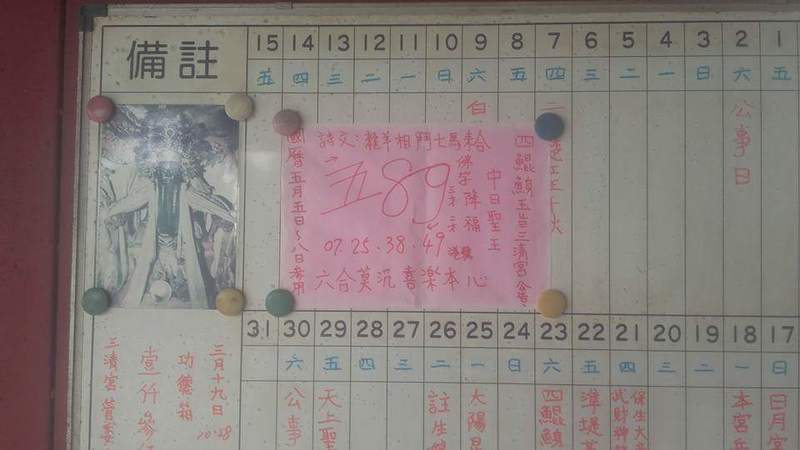 備註
15 14 13 12 11 10 9 8 7 6 5 4 3 2 1
五 四 三 二 一 日 六 五 四 三 二 一 日 六 五
公事日
四鯤鯓玉旨三清宮公告
中日聖王
詩文:龍羊相鬥七馬耠
五89
07.25.38.49
港號
六合莫沉喜樂本心
國曆五月五日~八日參用
31 30 29 28 27 26 25 24 23 22 21 20 19 18 17
六 五 四 三 二 一 日 六 五 四 三 二 一 日
日月宮
本宮兵
保生大帝
武財神
準堤菩
四鯤鯓
太陽星
註生娘
天上聖
公事
三月十九日
10.28
功德箱
三清宮管委